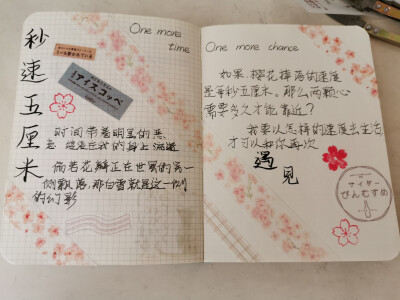 秒速五厘米
One more
time
アイスコッペ
时间带着明显的恶
意 缓缓在我的身上流逝
倘若花瓣正在世界的另一
侧飘落 那白雪就是这一侧
的幻影
One more chance
如果,樱花掉落的速度
是每秒五厘米。那么两颗心
需要多久才能靠近?
我要以怎样的速度去生活
才可以和你再次
遇
见
サイダー
びんむすめ